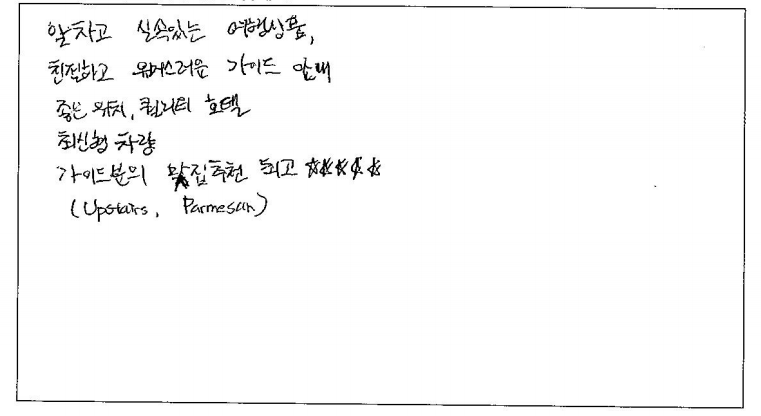 알차고 실속있는 여행상품,
친절하고 유머스러운 가이드 안내
좋은 위치, 퀄리티 호텔
최신형 차량
가이드분의 맛집추천 최고 ☆☆☆☆☆
(Upstairs, Parmesan)